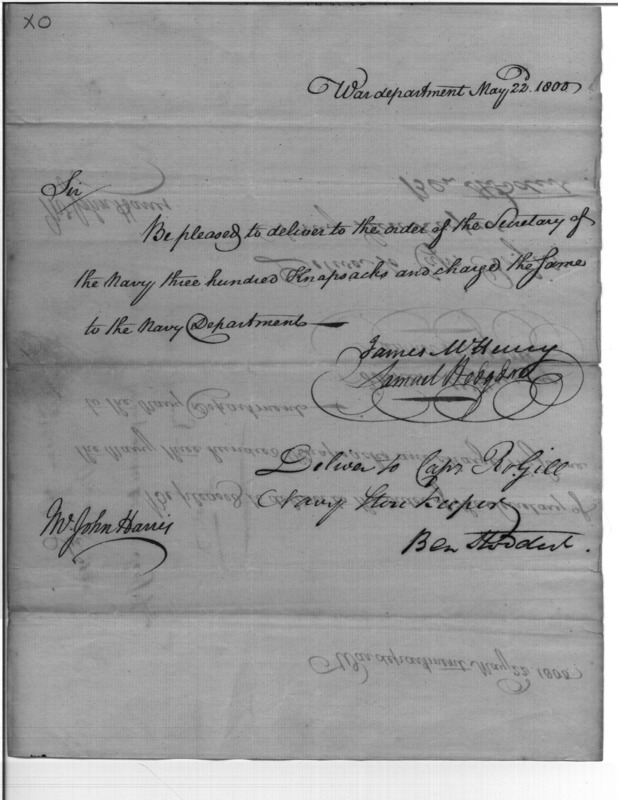 XO
War department May 22d. 1800
Sir
Be pleased to deliver to the order of the Secretary of
the Navy three hundred Knapsacks and charge the same
to the Navy Department
James McHenry
Samuel Hodgdon
Deliver to Capt R. Gill
Navy Store Keeper
Mr. John Harris
Ben Stoddert.